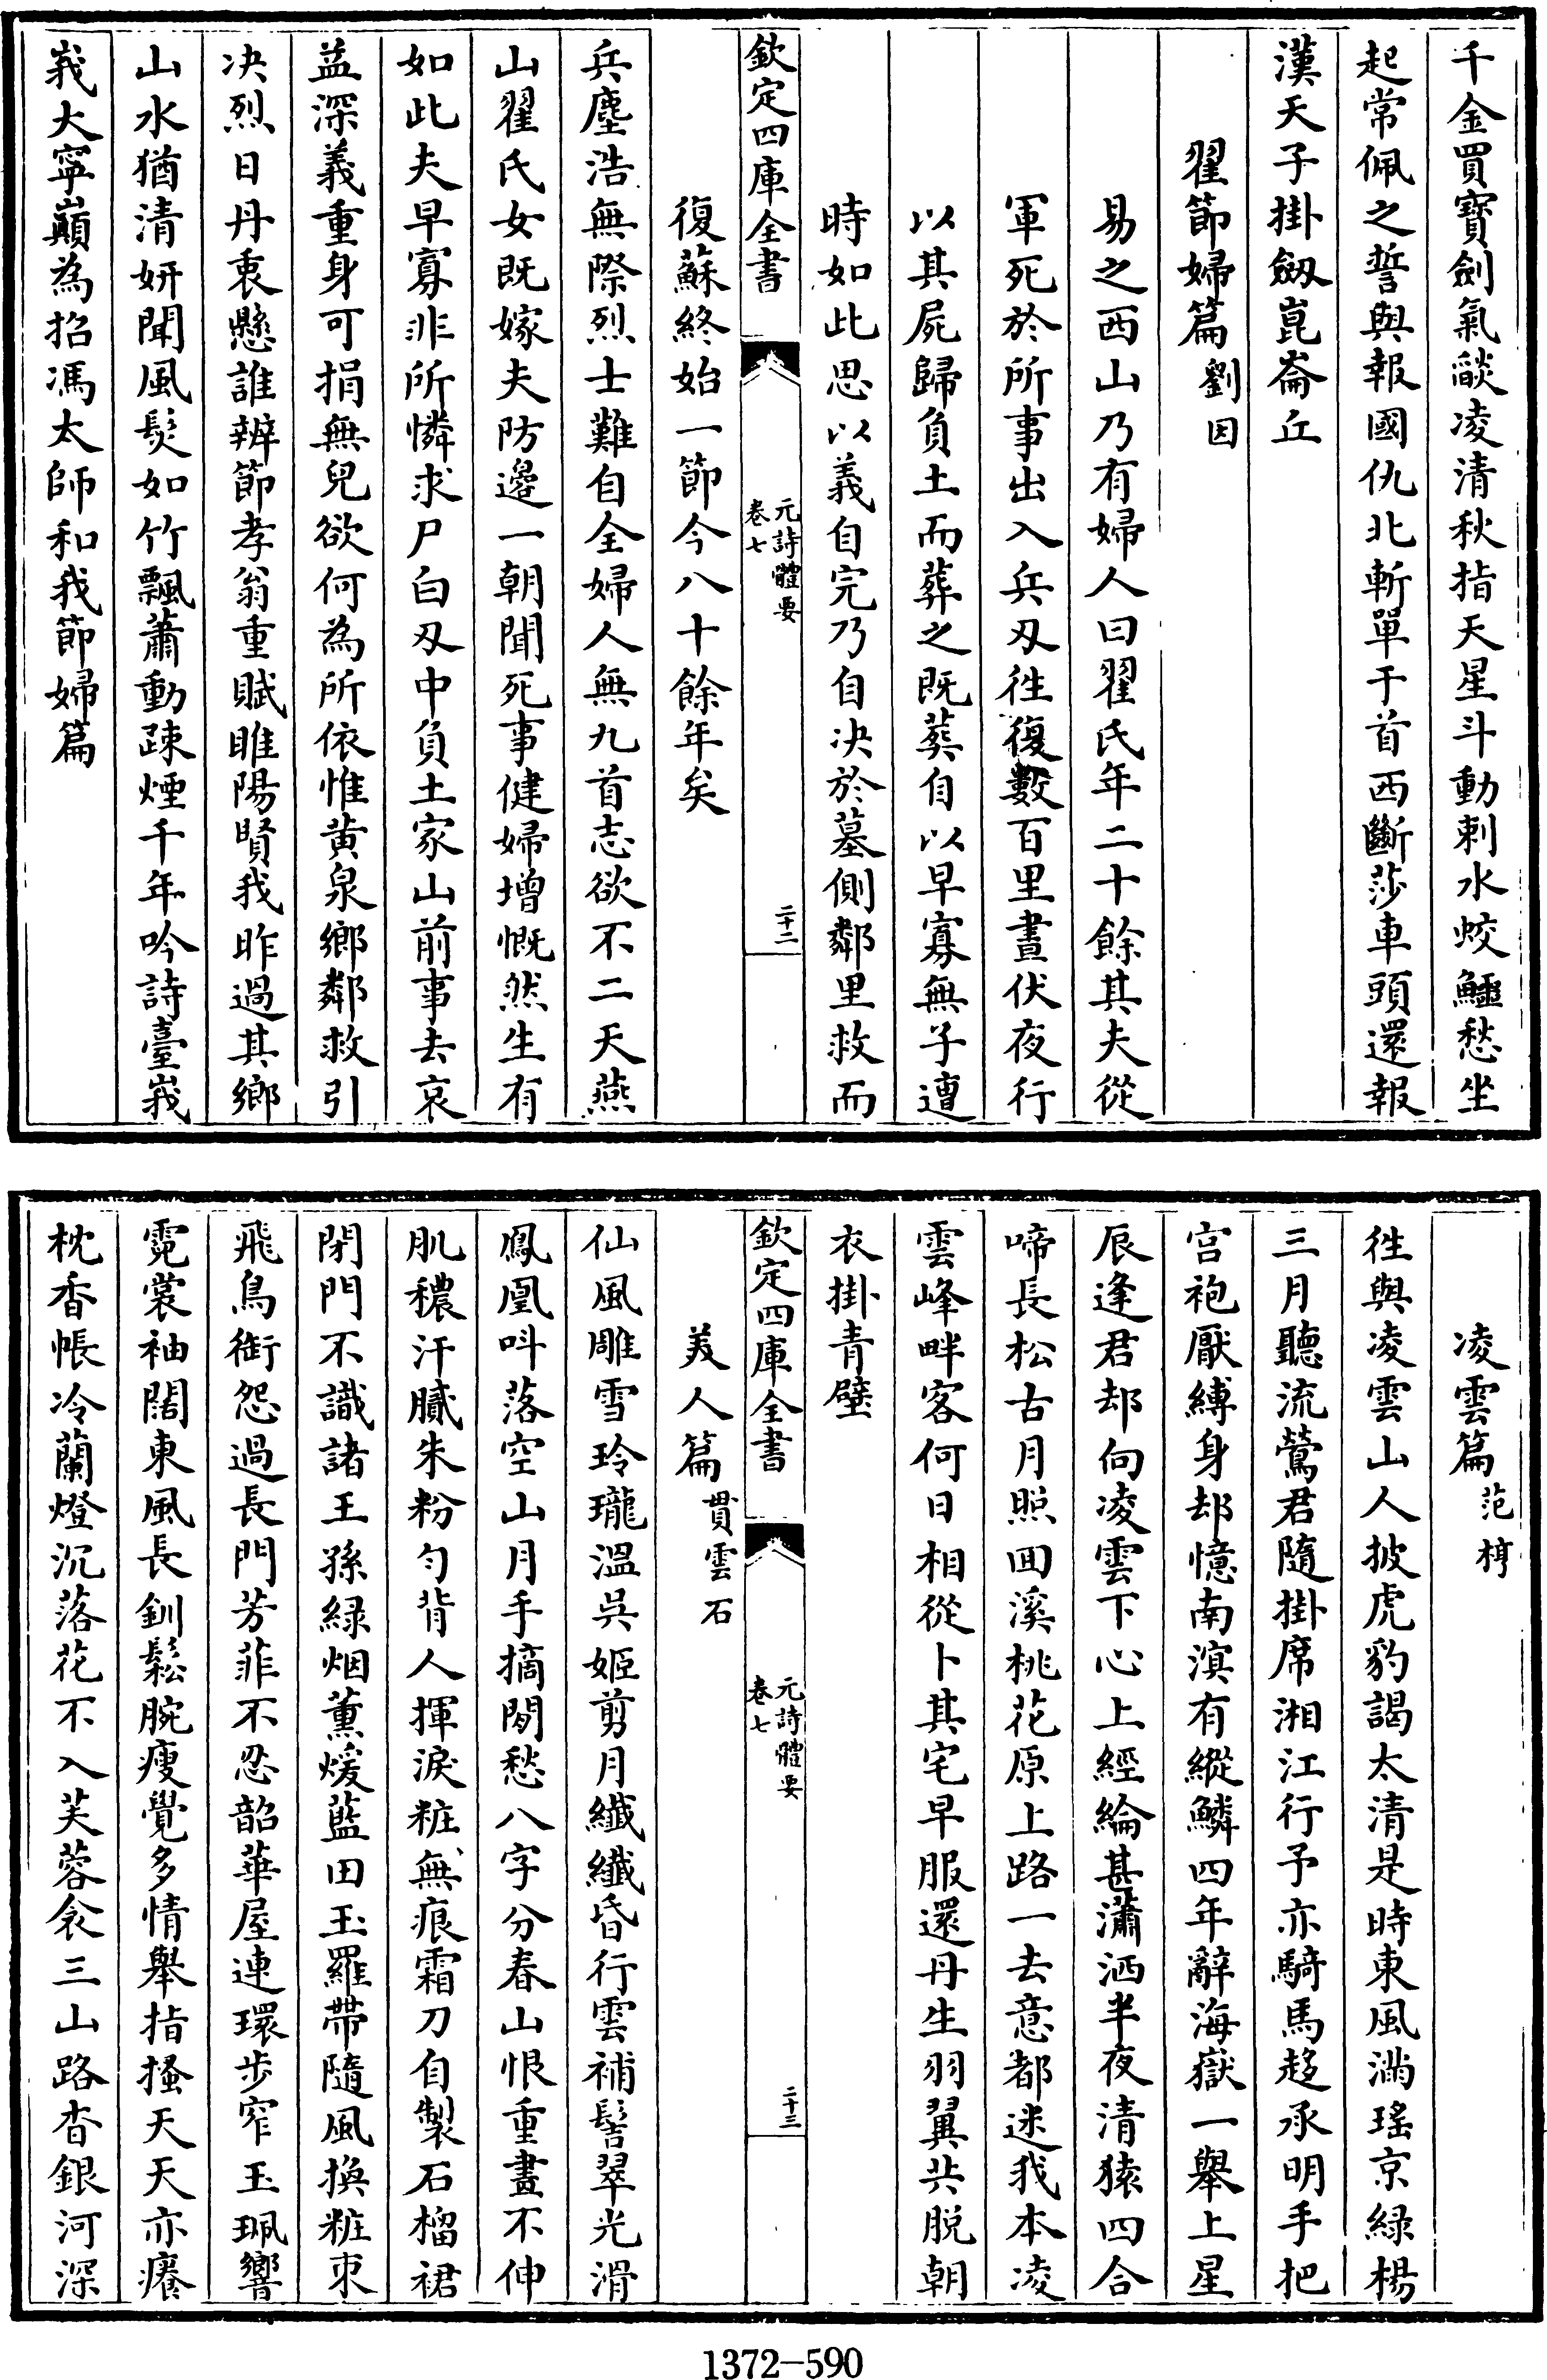 千金買寶劍氣燄凌清秋指天星斗動刺水蛟鱷愁坐
起常佩之誓與報國仇北斬單于首西斷莎車頭還報
漢天子掛劔崑崙丘
翟節婦篇 劉因
易之西山乃有婦人曰翟氏年二十餘其夫從
軍死於所事出入兵刄徃復數百里晝伏夜行
以其屍歸負土而葬之既葬自以早寡無子遭
時如此思以義自完乃自决於墓側鄰里救而
欽定四庫全書
元詩體要
卷七
二十二
復蘇終始一節今八十餘年矣
兵塵浩無際烈士難自全婦人無九首志欲不二天燕
山翟氏女既嫁夫防邊一朝聞死事健婦增慨然生有
如此夫早寡非所憐求尸白刄中負土家山前事去哀
益深義重身可捐無兒欲何為所依惟黄泉鄉鄰救引
决烈日丹衷懸誰辨節孝翁重賦睢陽賢我昨過其鄉
山水猶清妍聞風髮如竹飄蕭動疎煙千年吟詩臺峩
峩大寧巔為招馮太師和我節婦篇
凌雲篇 范梈
徃與凌雲山人披虎豹謁太清是時東風滿瑤京緑楊
三月聽流鶯君隨掛席湘江行予亦騎馬趍承明手把
宫袍厭縛身却憶南溟有縱鱗四年辭海嶽一舉上星
辰逢君却向凌雲下心上經綸甚瀟洒半夜清猿四合
啼長松古月照回溪桃花原上路一去意都迷我本凌
雲峰畔客何日相從卜其宅早服還丹生羽翼共脱朝
衣掛青壁
欽定四庫全書
元詩體要
卷七
二十三
美人篇 貫雲石
仙風雕雪玲瓏溫吳姬剪月纖纖昏行雲補髻翠光滑
鳳凰呌落空山月手摘閒愁八字分春山恨重畫不伸
肌穠汗膩朱粉勻背人揮淚粧無痕霜刀自製石榴裙
閉門不識諸王孫緑烟薰煖藍田玉羅帶隨風換粧束
飛鳥銜怨過長門芳菲不忍韶華屋連環步窄玉珮響
霓裳袖闊東風長釧鬆腕瘦覺多情舉指搔天天亦癢
枕香帳冷蘭燈沉落花不入芙蓉衾三山路杳銀河深
1372-590